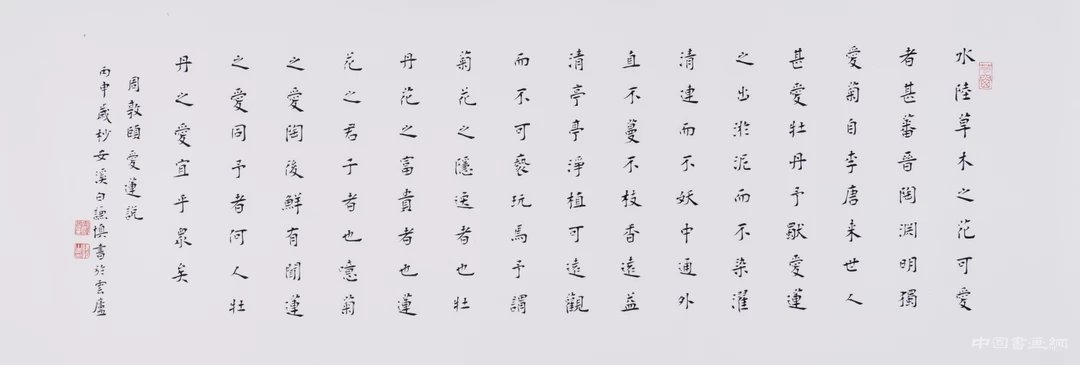 水陸草木之花可愛
者甚蕃晉陶渊明獨
愛菊自李唐来世人
甚愛牡丹予獨愛蓮
之出淤泥而不染濯
清漣而不妖中通外
直不蔓不枝香遠益
清亭亭淨植可遠觀
而不可褻玩焉予謂
菊花之隱逸者也牡
丹花之富貴者也蓮
花之君子者也噫菊
之愛陶後鮮有聞蓮
之愛同予者何人牡
丹之愛宜乎眾矣
周敦頤愛蓮說
丙申歲杪安溪白謙慎書於雲廬
中国書画網